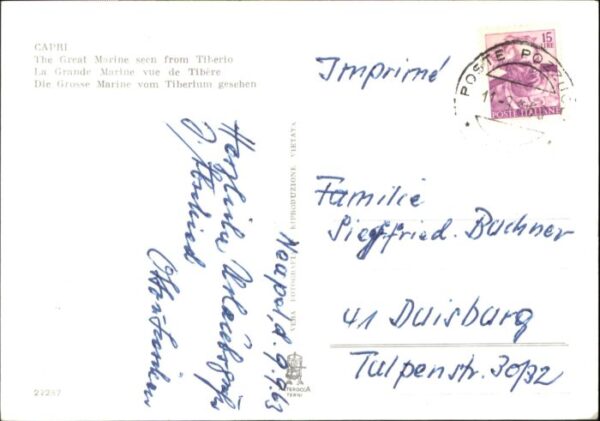 CAPRI
The Great Marine seen from Tiberio
La Grande Marine vue de Tibère
Die Grosse Marine vom Tiberium gesehen
15
LIRE
POSTE ITALIANE
POSTE
Imprimé
Familie
Siegfried. Buchner
41 Duisburg
Tulpenstr. 30/32
VERA FOTOGRAFIA RIPRODUZIONE VIETATA
Neapel, d. 9.9.63
Herzliche Urlaubsgrüße
TERNI
22287